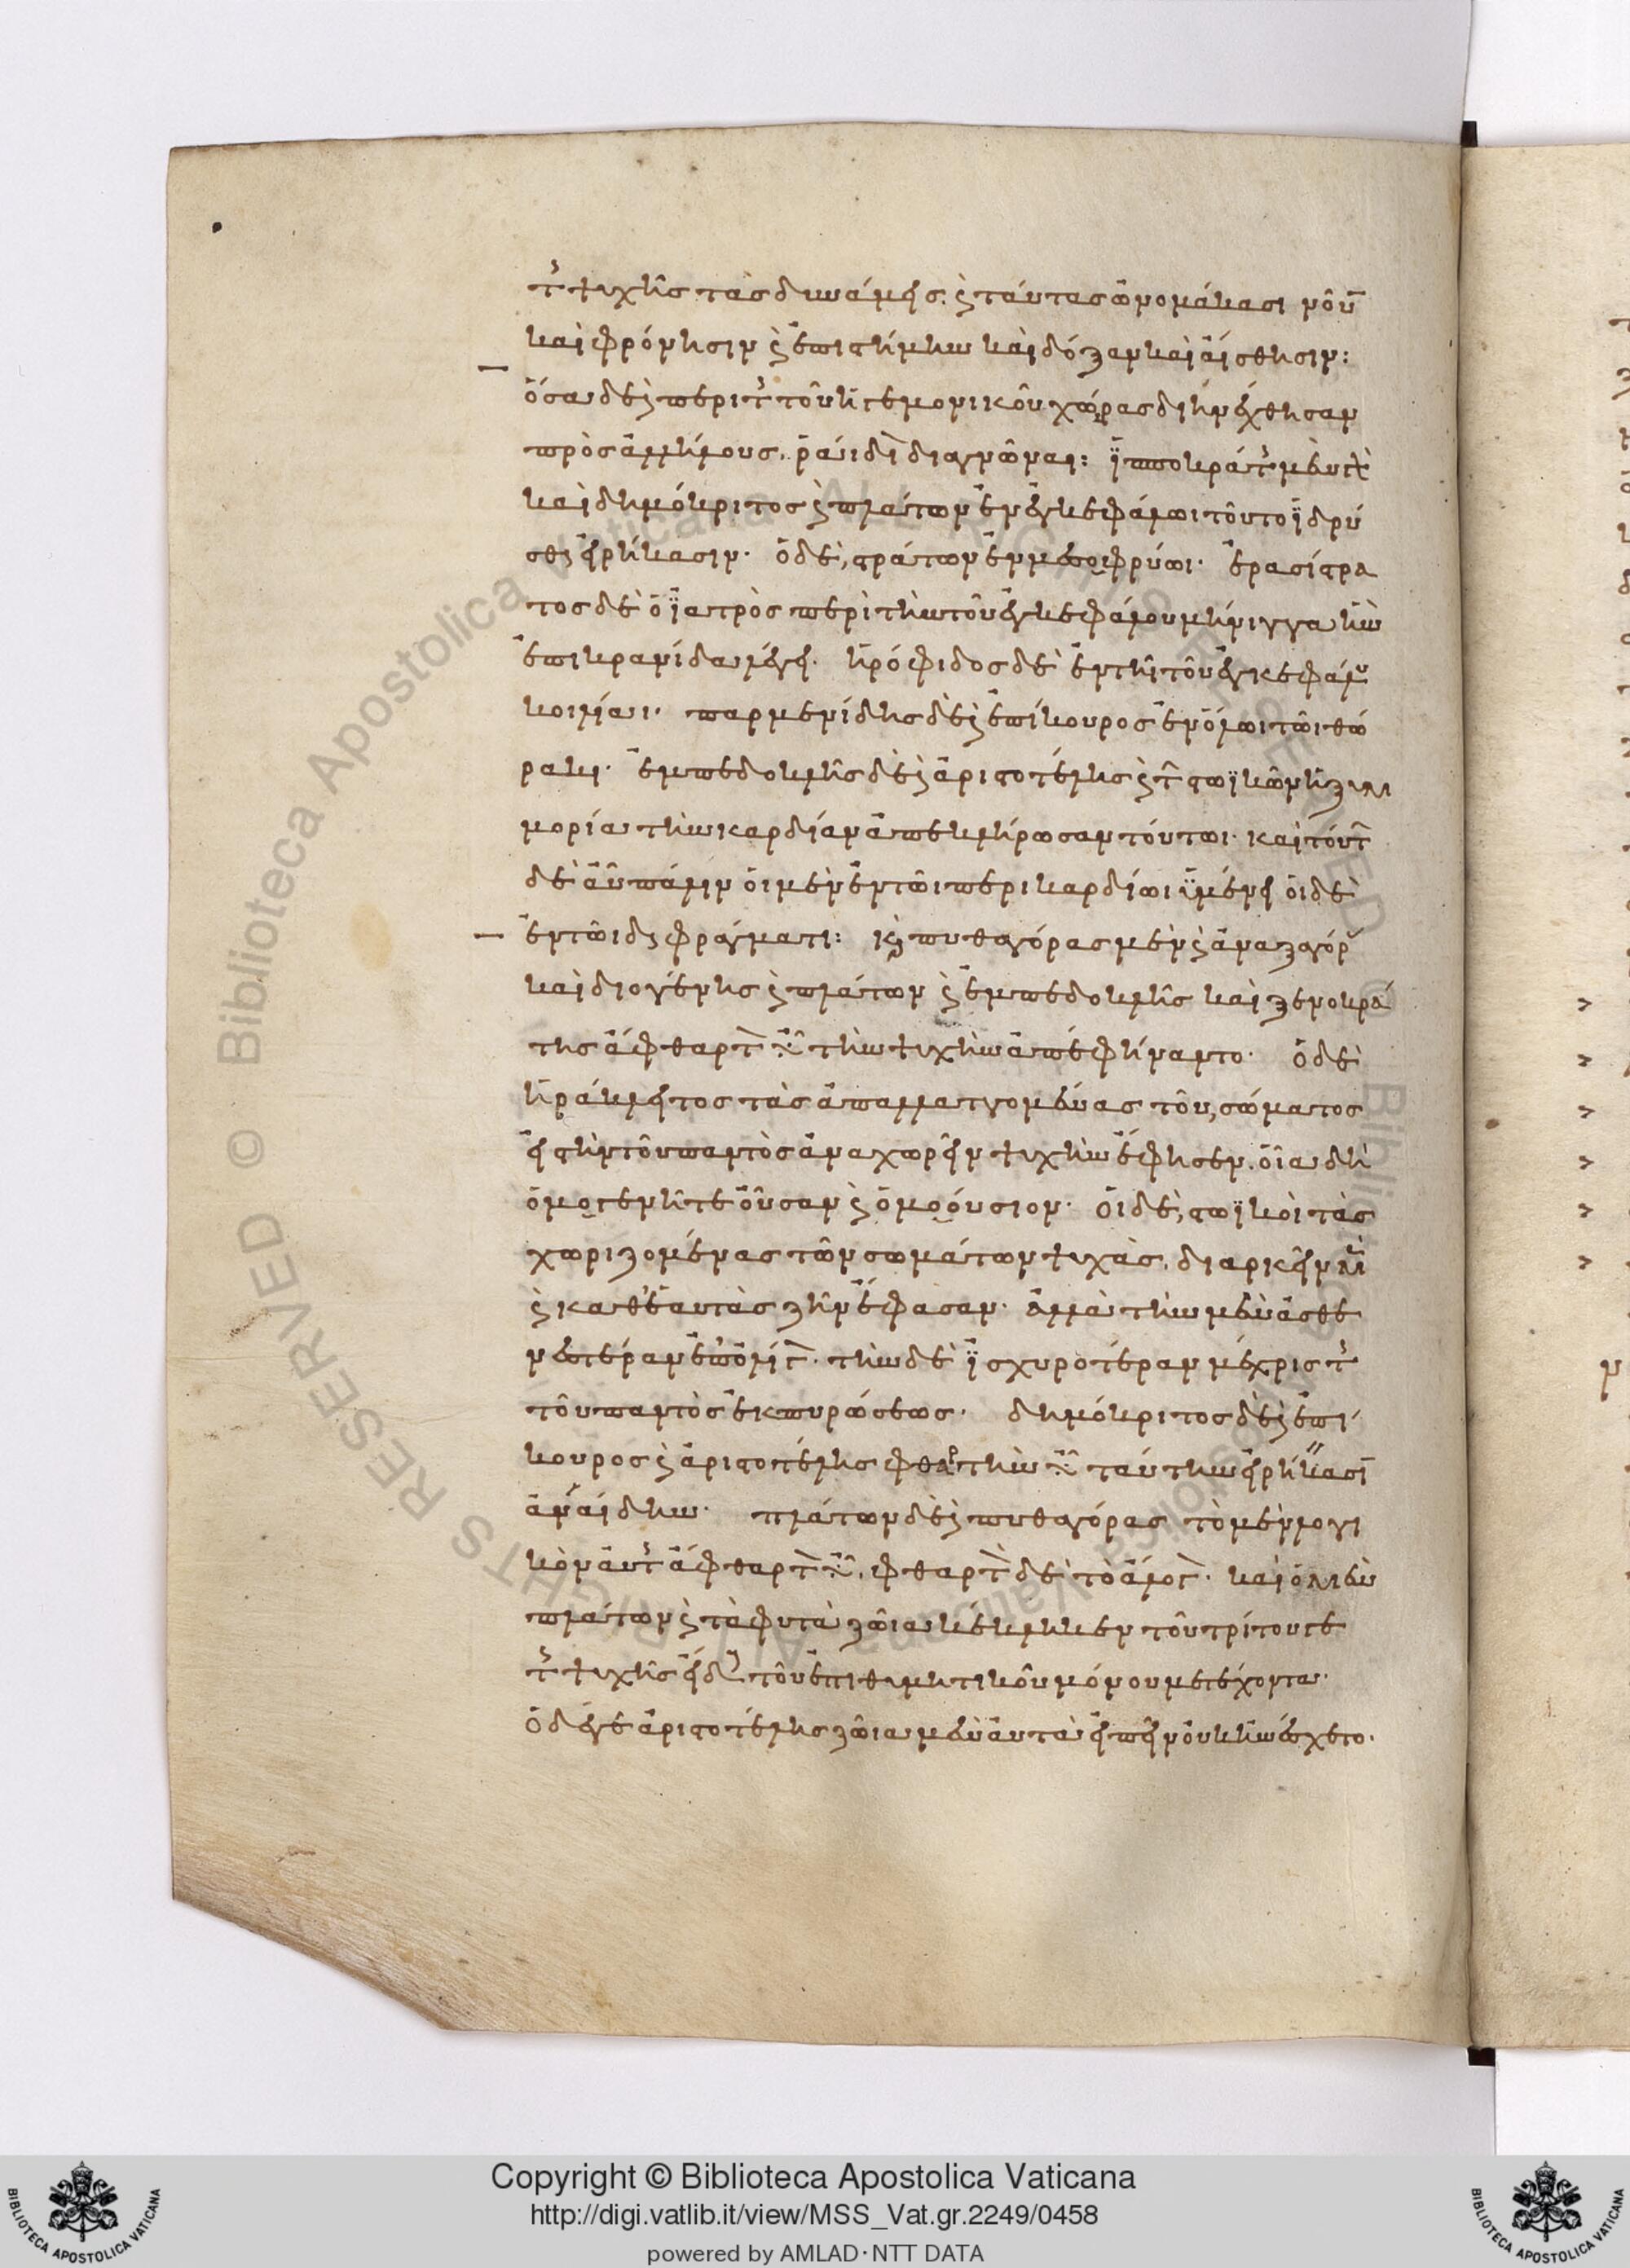 τῆς ψυχῆς τὰς δυνάμεις· καὶ ταύτας ὠνομάκασι νοῦν
καὶ φρόνησιν καὶ ἐπιστήμην καὶ δόξαν καὶ αἴσθησιν:
ὅσα δὲ καὶ περὶ τῆς τοῦ ἡγεμονικοῦ χώρας διηνέχθησαν
πρὸς ἀλλήλους, ῥάιδιον διαγνῶναι: ἱπποκράτης μὲν γὰρ
καὶ δημόκριτος καὶ πλάτων ἐν ἐγκεφάλωι τοῦτο ἱδρύ
σθαι εἰρήκασιν· ὁ δὲ στράτων ἐν μεσοφρύωι· ἐρασίστρα
τος δὲ ὁ ἰατρὸς περὶ τὴν τοῦ ἐγκεφάλου μήνιγγα ἣν
ἐπικρανίδα λέγει· ἡρόφιλος δὲ ἐν τῆι τοῦ ἐγκεφάλου
κοιλίαι· παρμενίδης δὲ καὶ ἐπίκουρος ἐν ὅλωι τῶι θώ
ρακι· ἐμπεδοκλῆς δὲ καὶ ἀριστοτέλης καὶ τῶν στωϊκῶν ἡ ξυμ
μορία τὴν καρδίαν ἀπεκλήρωσαν τούτωι· καὶ τούτων
δὲ αὖ πάλιν οἱ μὲν ἐν τῶι περικαρδίωι αἵματι οἱ δὲ
ἐν τῶι διαφράγματι: καὶ πυθαγόρας μὲν καὶ ἀναξαγόρας
καὶ διογένης καὶ πλάτων καὶ ἐμπεδοκλῆς καὶ ξενοκρά
της ἄφθαρτον εἶναι τὴν ψυχὴν ἀπεφήναντο· ὁ δὲ
ἡράκλειτος τὰς ἀπαλλαττομένας τοῦ σώματος
εἰς τὴν τοῦ παντὸς ἀναχωρεῖν ψυχὴν ἔφησεν· οἷα δὴ
ὁμογενῆ τε οὖσαν καὶ ὁμοούσιον· οἱ δὲ στωϊκοὶ τὰς
χωριζομένας τῶν σωμάτων ψυχὰς, διαρκεῖν μὲν
καὶ καθ' ἑαυτὰς ζῆν ἔφασαν· ἀλλὰ τὴν μὲν ἀσθε
νεστέραν ἐπ' ὀλίγον· τὴν δὲ ἰσχυροτέραν μέχρις τῆς
τοῦ παντὸς ἐκπυρώσεως· δημόκριτος δὲ καὶ ἐπί
κουρος καὶ ἀριστοτέλης φθαρτὴν εἶναι ταύτην εἰρήκασιν
ἀναίδην· πλάτων δὲ καὶ πυθαγόρας τὸ μὲν λογι
κὸν αὐτῆς ἄφθαρτον εἶναι, φθαρτὸν δὲ τὸ ἄλογον· καὶ ὁ μὲν
πλάτων καὶ τὰ φυτὰ ζῶια κέκληκεν τοῦ τρίτου γε
τῆς ψυχῆς εἴδους τοῦ ἐπιθυμητικοῦ μόνου μετέχοντα·
ὁ δέ γε ἀριστοτέλης ζῶια μὲν αὐτὰ εἰπεῖν οὐκ ἠνέσχετο·
Copyright © Biblioteca Apostolica Vaticana
http://digi.vatlib.it/view/MSS_Vat.gr.2249/0458
powered by AMLAD·NTT DATA